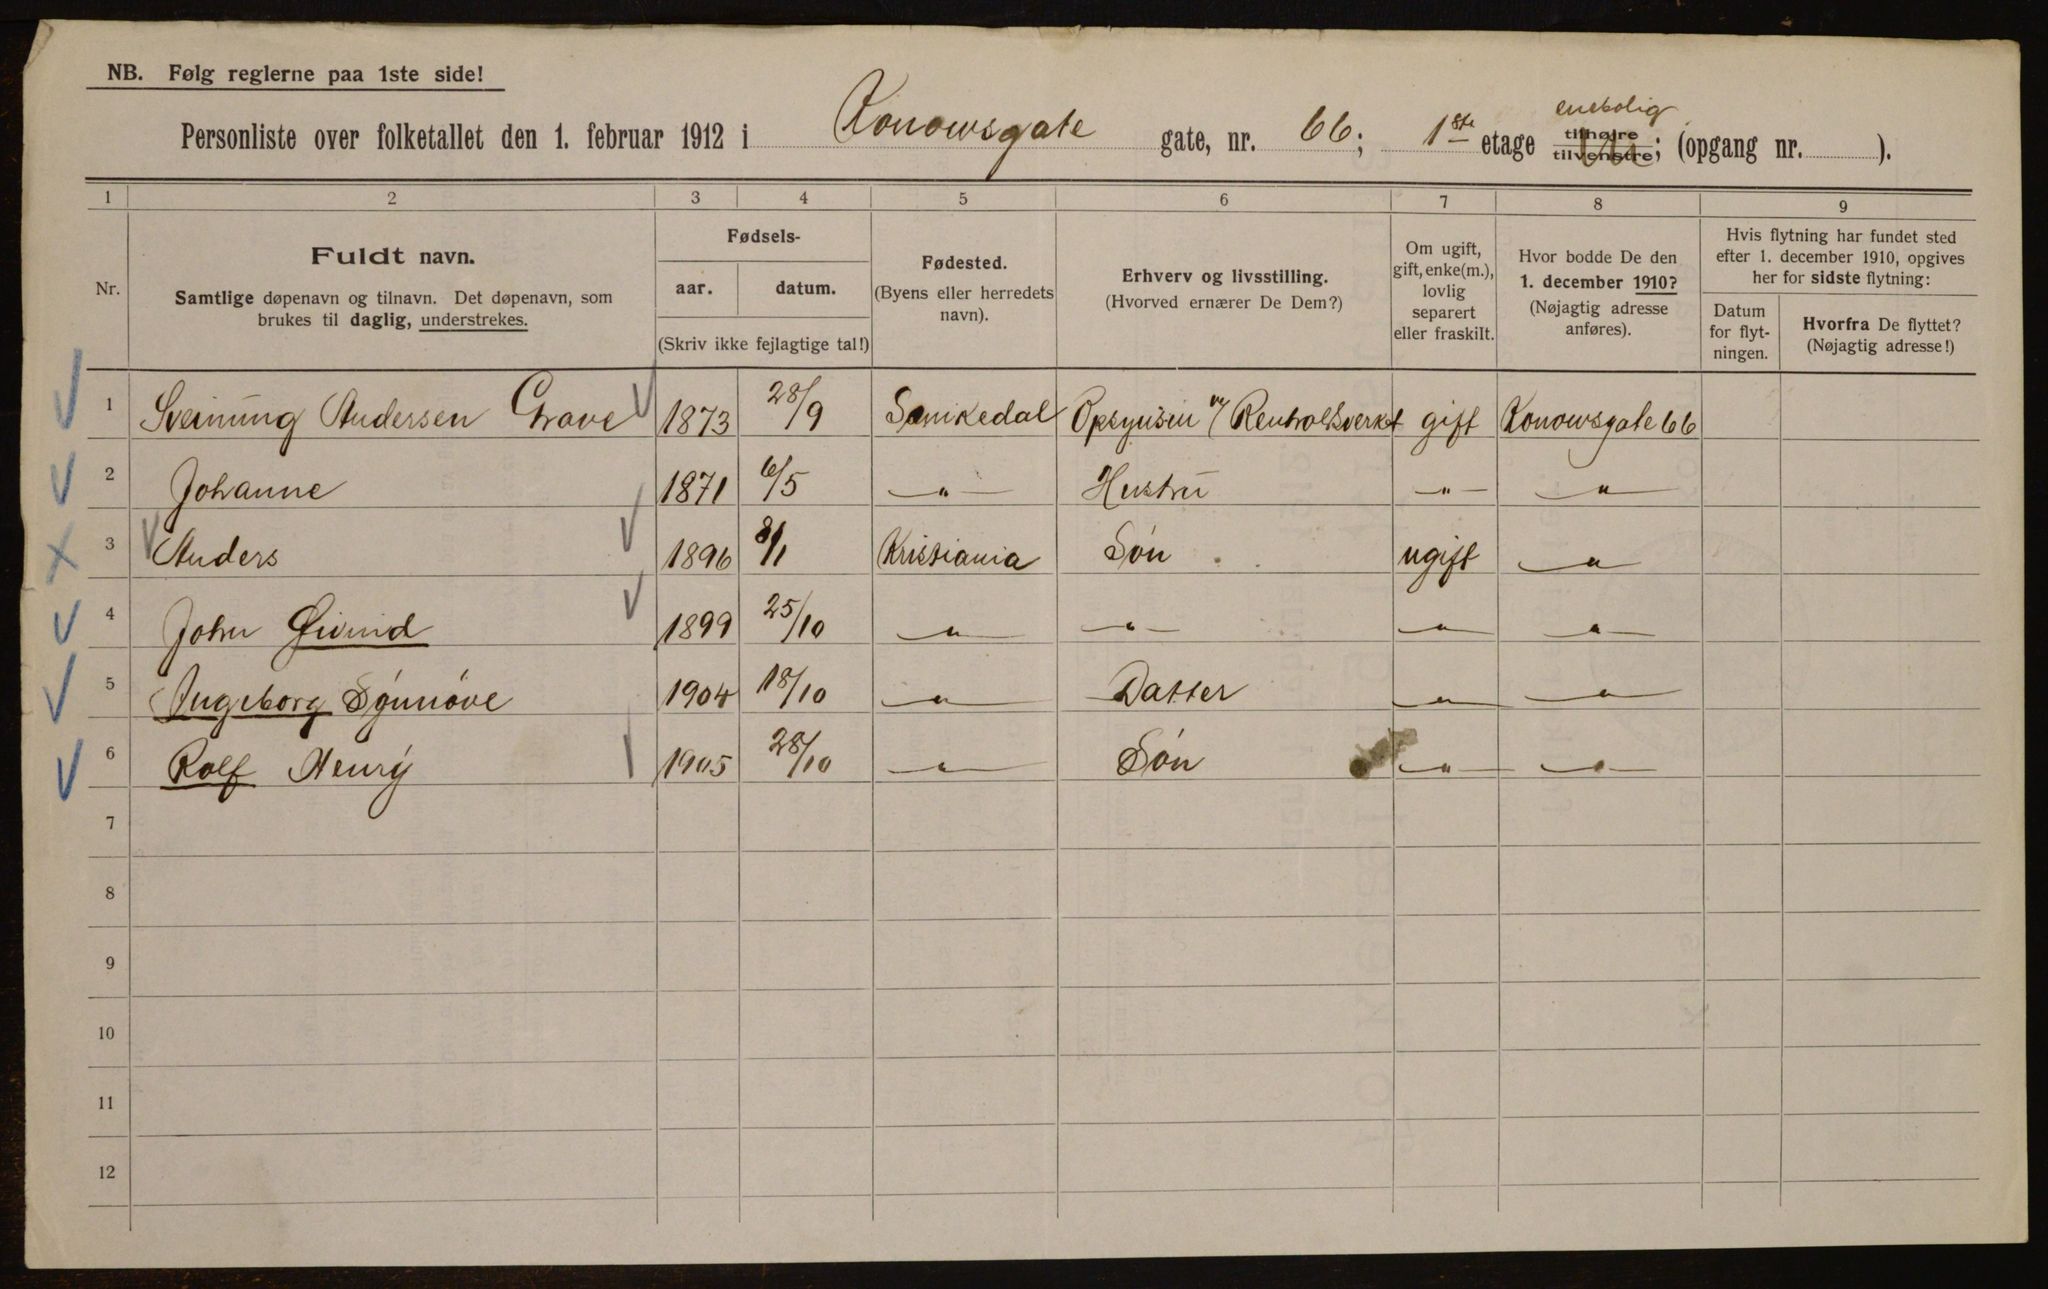 NB. Følg reglerne paa 1ste side!
enebolig
Personliste over folketallet den 1. februar 1912 i Konowsgate gate, nr. 66; 1ste etage tilhøire tilvenstre; (opgang nr. ).
1 2 3 4 5 6 7 8 9
Nr.
Fuldt navn.
Samtlige døpenavn og tilnavn. Det døpenavn, som
brukes til daglig, understrekes.
Fødsels-
aar. datum.
(Skriv ikke fejlagtige tal!)
Fødested.
(Byens eller herredets
navn).
Erhverv og livsstilling.
(Hvorved ernærer De Dem?)
Om ugift,
gift, enke(m.),
lovlig
separert
eller fraskilt.
Hvor bodde De den
1. december 1910?
(Nøjagtig adresse
anføres).
Hvis flytning har fundet sted
efter 1. december 1910, opgives
her for sidste flytning:
Datum
for flyt-
ningen.
Hvorfra De flyttet?
(Nøjagtig adresse!)
1 Sveinung Andersen Grave 1873 28/9 Sannikedal Opsynsm v/ Renholdsverket gift Konowsgate 66
2 Johanne 1871 6/5 -"- Hustru -"- -"-
3 Anders 1896 8/1 Kristiania Søn ugift -"-
4 John Øivind 1899 25/10 -"- -"- -"- -"-
5 Ingeborg Synnøve 1904 18/10 -"- Datter -"- -"-
6 Rolf Henry 1905 28/10 -"- Søn -"- -"-
7
8
9
10
11
12